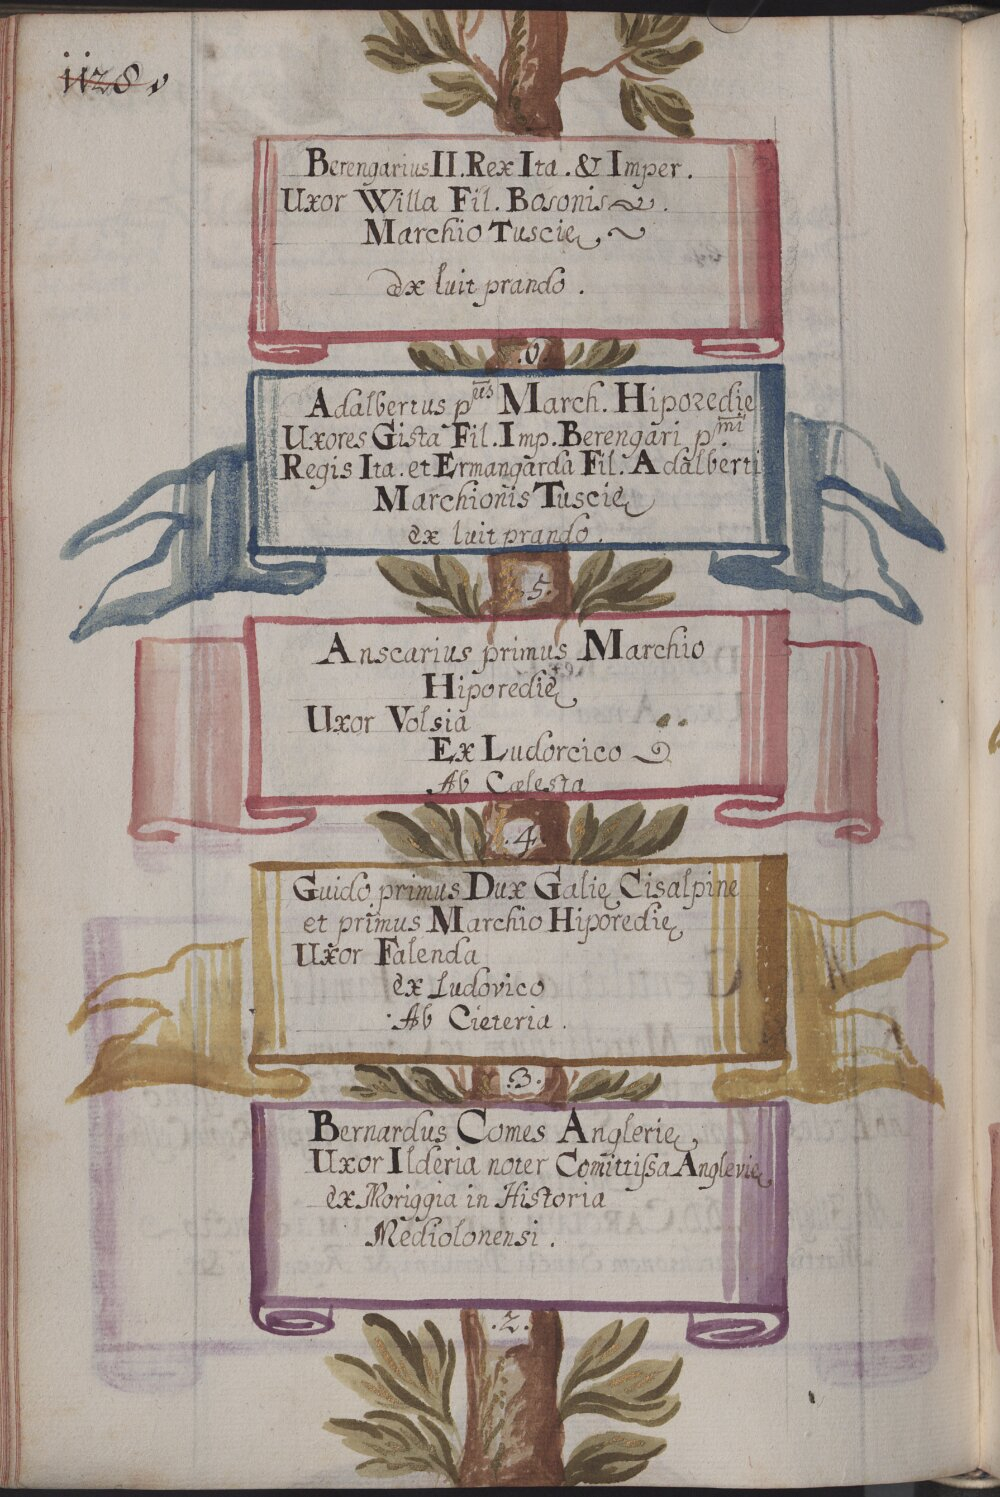 1128 v
Berengarius II. Rex Ita. & Imper.
Uxor Willa Fil. Bosonis
Marchio Tuscię
ex luit prando.
.6.
Adalbertus pus March. Hiporedię
Uxores Gista Fil. Imp. Berengari pmi
Regis Ita. et Ermangarda Fil. Adalberti
Marchionis Tuscię
ex luit prando.
.5.
Anscarius primus Marchio
Hiporedię
Uxor Volsia
Ex Ludorcico
Ab Cœlesta
.4.
Guido primus Dux Galię Cisalpine
et primus Marchio Hiporedię
Uxor Falenda
ex Ludovico
Ab Cieteria.
.3.
Bernardus Comes Anglerię
Uxor Ilderia noter Comittissa Anglerię
ex Moriggia in Historia
Mediolonensi.
.2.